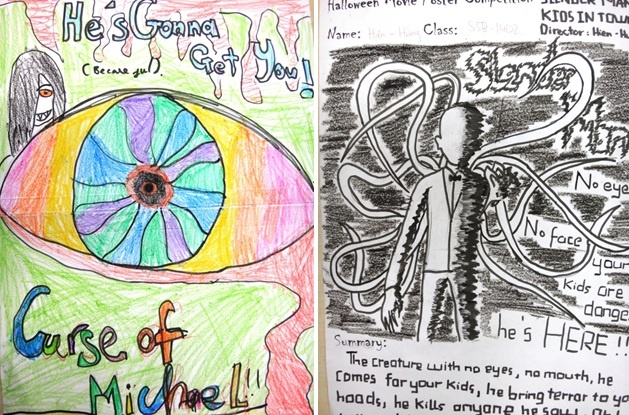 He's Gonna
Get You!
(Becare ful).
Curse of
Michael!!
Halloween Movie Poster Competition
SLENDER MAN
KIDS IN TOWN
Name: Class:
Director: Hien - Hu
Slender
Man
No eye
No face
your
kids are
dange
he's HERE!!
Summary:
The creature with no eyes, no mouth, he
comes for your kids, he bring terror to yo
hoods, he kills anyone he saw